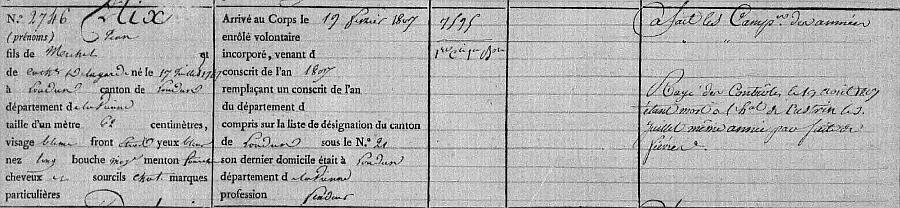 N.º 2746 Hix
(prénoms) Jean
fils de Michel et
de Cath. Delagarde né le 17 Juillet 1787
à Loudun canton de Loudun
département de la Vienne
taille d'un mètre 62 centimètres,
visage front yeux bleus
nez long bouche moy. menton
cheveux et sourcils chat. marques
particulières
Arrivé au Corps le 19 février 1807
enrôlé volontaire
incorporé, venant d
conscrit de l'an 1807
remplaçant un conscrit de l'an
du département d
compris sur la liste de désignation du canton
de Loudun sous le N.º 21
son dernier domicile était à Loudun
département de la Vienne
profession
7595
a fait les Camp.es des années
Rayé des Contrôles le 19 août 1807
étant mort à l'h.al de Custrin le 3
juillet même année par suite de
fièvre